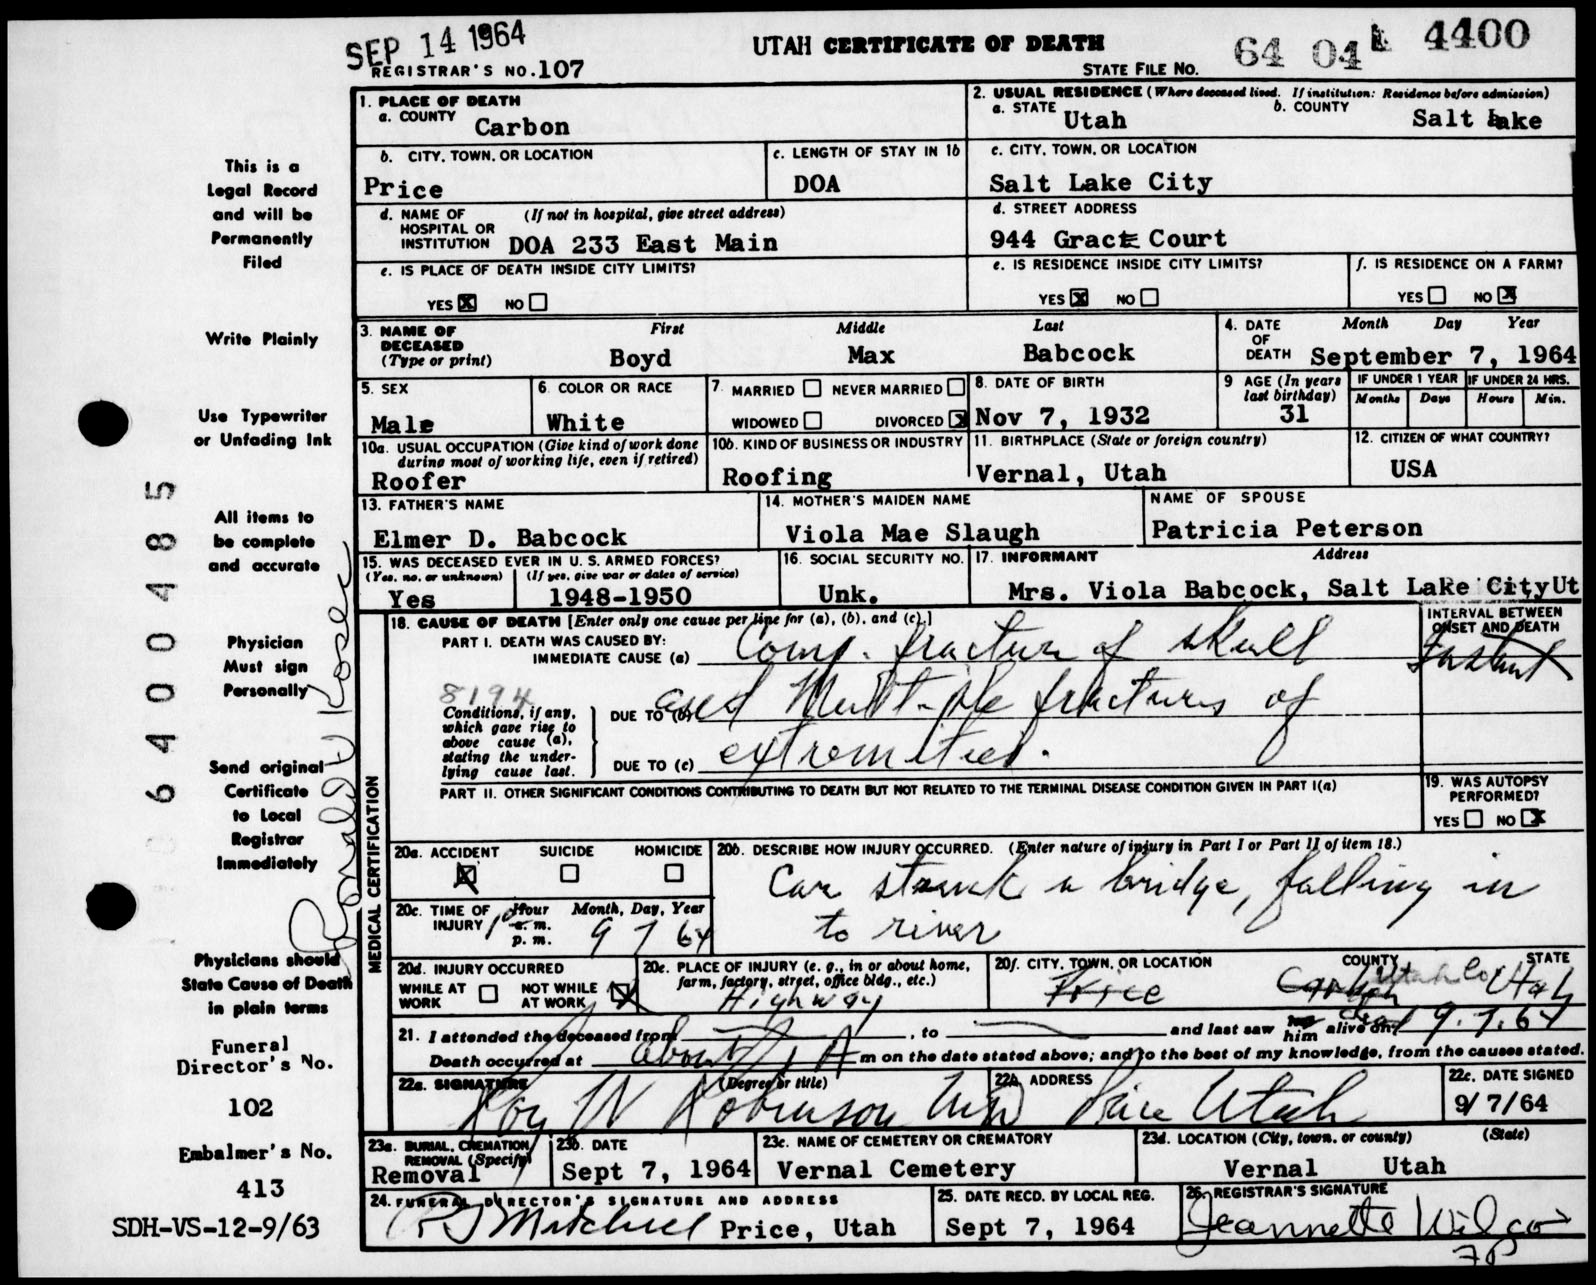 SEP 14 1964
REGISTRAR'S NO. 107
UTAH CERTIFICATE OF DEATH
STATE FILE NO. 64 04 4400
1. PLACE OF DEATH
a. COUNTY Carbon
2. USUAL RESIDENCE (Where deceased lived. If institution: Residence before admission)
a. STATE Utah b. COUNTY Salt Lake
b. CITY, TOWN, OR LOCATION Price
c. LENGTH OF STAY IN 1b DOA
c. CITY, TOWN, OR LOCATION Salt Lake City
d. NAME OF HOSPITAL OR INSTITUTION (If not in hospital, give street address) DOA 233 East Main
d. STREET ADDRESS 944 Grace Court
e. IS PLACE OF DEATH INSIDE CITY LIMITS? YES X NO
e. IS RESIDENCE INSIDE CITY LIMITS? YES X NO
f. IS RESIDENCE ON A FARM? YES NO X
3. NAME OF DECEASED (Type or print) First Middle Last
Boyd Max Babcock
4. DATE OF DEATH Month Day Year
September 7, 1964
5. SEX Male
6. COLOR OR RACE White
7. MARRIED NEVER MARRIED WIDOWED DIVORCED X
8. DATE OF BIRTH Nov 7, 1932
9 AGE (In years last birthday) 31
IF UNDER 1 YEAR Months Days
IF UNDER 24 HRS. Hours Min.
10a. USUAL OCCUPATION (Give kind of work done during most of working life, even if retired) Roofer
10b. KIND OF BUSINESS OR INDUSTRY Roofing
11. BIRTHPLACE (State or foreign country) Vernal, Utah
12. CITIZEN OF WHAT COUNTRY? USA
13. FATHER'S NAME Elmer D. Babcock
14. MOTHER'S MAIDEN NAME Viola Mae Slaugh
NAME OF SPOUSE Patricia Peterson
15. WAS DECEASED EVER IN U. S. ARMED FORCES?
(Yes, no, or unknown) (If yes, give war or dates of service)
Yes 1948-1950
16. SOCIAL SECURITY NO. Unk.
17. INFORMANT Address
Mrs. Viola Babcock, Salt Lake City Ut
18. CAUSE OF DEATH [Enter only one cause per line for (a), (b), and (c).]
INTERVAL BETWEEN ONSET AND DEATH
PART I. DEATH WAS CAUSED BY:
IMMEDIATE CAUSE (a) Comp. fracture of skull Instant
8194
Conditions, if any, which gave rise to above cause (a), stating the underlying cause last.
DUE TO (b) and Multiple fractures of
DUE TO (c) extremities.
PART II. OTHER SIGNIFICANT CONDITIONS CONTRIBUTING TO DEATH BUT NOT RELATED TO THE TERMINAL DISEASE CONDITION GIVEN IN PART I(a)
19. WAS AUTOPSY PERFORMED? YES NO X
MEDICAL CERTIFICATION
20a. ACCIDENT X SUICIDE HOMICIDE
20b. DESCRIBE HOW INJURY OCCURRED. (Enter nature of injury in Part I or Part II of item 18.)
Car struck a bridge, falling in
to river
20c. TIME OF INJURY Hour a. m. p. m. Month, Day, Year
9 7 64
20d. INJURY OCCURRED
WHILE AT WORK NOT WHILE AT WORK X
20e. PLACE OF INJURY (e. g., in or about home, farm, factory, street, office bldg., etc.)
Highway
20f. CITY, TOWN, OR LOCATION COUNTY STATE
Price Carbon Utah Co Utah
21. I attended the deceased from , to and last saw him alive on 9.7.64
Death occurred at about 1 A m on the date stated above; and to the best of my knowledge, from the causes stated.
22a. SIGNATURE (Degree or title) Roy W Robinson MD
22b. ADDRESS Price Utah
22c. DATE SIGNED 9/7/64
23a. BURIAL, CREMATION, REMOVAL (Specify) Removal
23b. DATE Sept 7, 1964
23c. NAME OF CEMETERY OR CREMATORY Vernal Cemetery
23d. LOCATION (City, town, or county) (State)
Vernal Utah
24. FUNERAL DIRECTOR'S SIGNATURE AND ADDRESS
R J Mitchell Price, Utah
25. DATE RECD. BY LOCAL REG. Sept 7, 1964
26. REGISTRAR'S SIGNATURE Jeannette Wilcox
This is a
Legal Record
and will be
Permanently
Filed
Write Plainly
Use Typewriter
or Unfading Ink
All items to
be complete
and accurate
Physician
Must sign
Personally
Send original
Certificate
to Local
Registrar
Immediately
Physicians should
State Cause of Death
in plain terms
Funeral
Director's No.
102
Embalmer's No.
413
SDH-VS-12-9/63
6400485